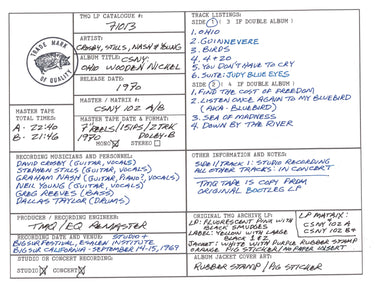 TMQ LP CATALOGUE #:
71013
ARTIST:
CROSBY, STILLS, NASH & YOUNG
ALBUM TITLE: CSNY:
OHIO WOODEN NICKEL
RELEASE DATE:
1970
MASTER / MATRIX #:
CSNY 102 A/B
TRADE MARK
OF QUALITY
MASTER TAPE
TOTAL TIMES:
A - 22:40
B - 21:46
MASTER TAPE DATE & FORMAT:
7" REELS / 15IPS / 2TRK
1970 DOLBY-B
MONO STEREO
TRACK LISTINGS:
SIDE 1 ( 3 IF DOUBLE ALBUM )
1. OHIO
2. GUINNEVERE
3. BIRDS
4. 4+20
5. YOU DON'T HAVE TO CRY
6. SUITE: JUDY BLUE EYES
SIDE 2 ( 4 IF DOUBLE ALBUM )
1. FIND THE COST OF FREEDOM
2. LISTEN ONCE AGAIN TO MY BLUEBIRD
(AKA - BLUEBIRD)
3. SEA OF MADNESS
4. DOWN BY THE RIVER
RECORDING MUSICIANS AND PERSONNEL:
DAVID CROSBY (GUITAR, VOCALS)
STEPHEN STILLS (GUITAR, VOCALS)
GRAHAM NASH (GUITAR, PIANO, VOCALS)
NEIL YOUNG (GUITAR, VOCALS)
GREG REEVES (BASS)
DALLAS TAYLOR (DRUMS)
OTHER INFORMATION AND NOTES:
SIDE 1/TRACK 1: STUDIO RECORDING
ALL OTHER TRACKS: IN CONCERT
TMQ TAPE IS COPY FROM
ORIGINAL BOOTLEG LP
PRODUCER / RECORDING ENGINEER:
TMQ / EQ REMASTER
RECORDING DATE AND VENUE STUDIO +
BIG SUR FESTIVAL, ESALEN INSTITUTE
BIG SUR CALIFORNIA - SEPTEMBER 14-15, 1969
STUDIO OR CONCERT RECORDING:
STUDIO CONCERT
ORIGINAL TMQ ARCHIVE LP
LP: FLUORESCENT PINK WITH
BLACK SMUDGES
LABEL: YELLOW WITH LARGE
BLACK 1 & 2
JACKET: WHITE WITH PURPLE RUBBER STAMP
ORANGE PIG STICKER / NO PAPER INSERT
LP MATRIX:
CSNY 102 A
CSNY 102 B
ALBUM JACKET COVER ART:
RUBBER STAMP / PIG STICKER